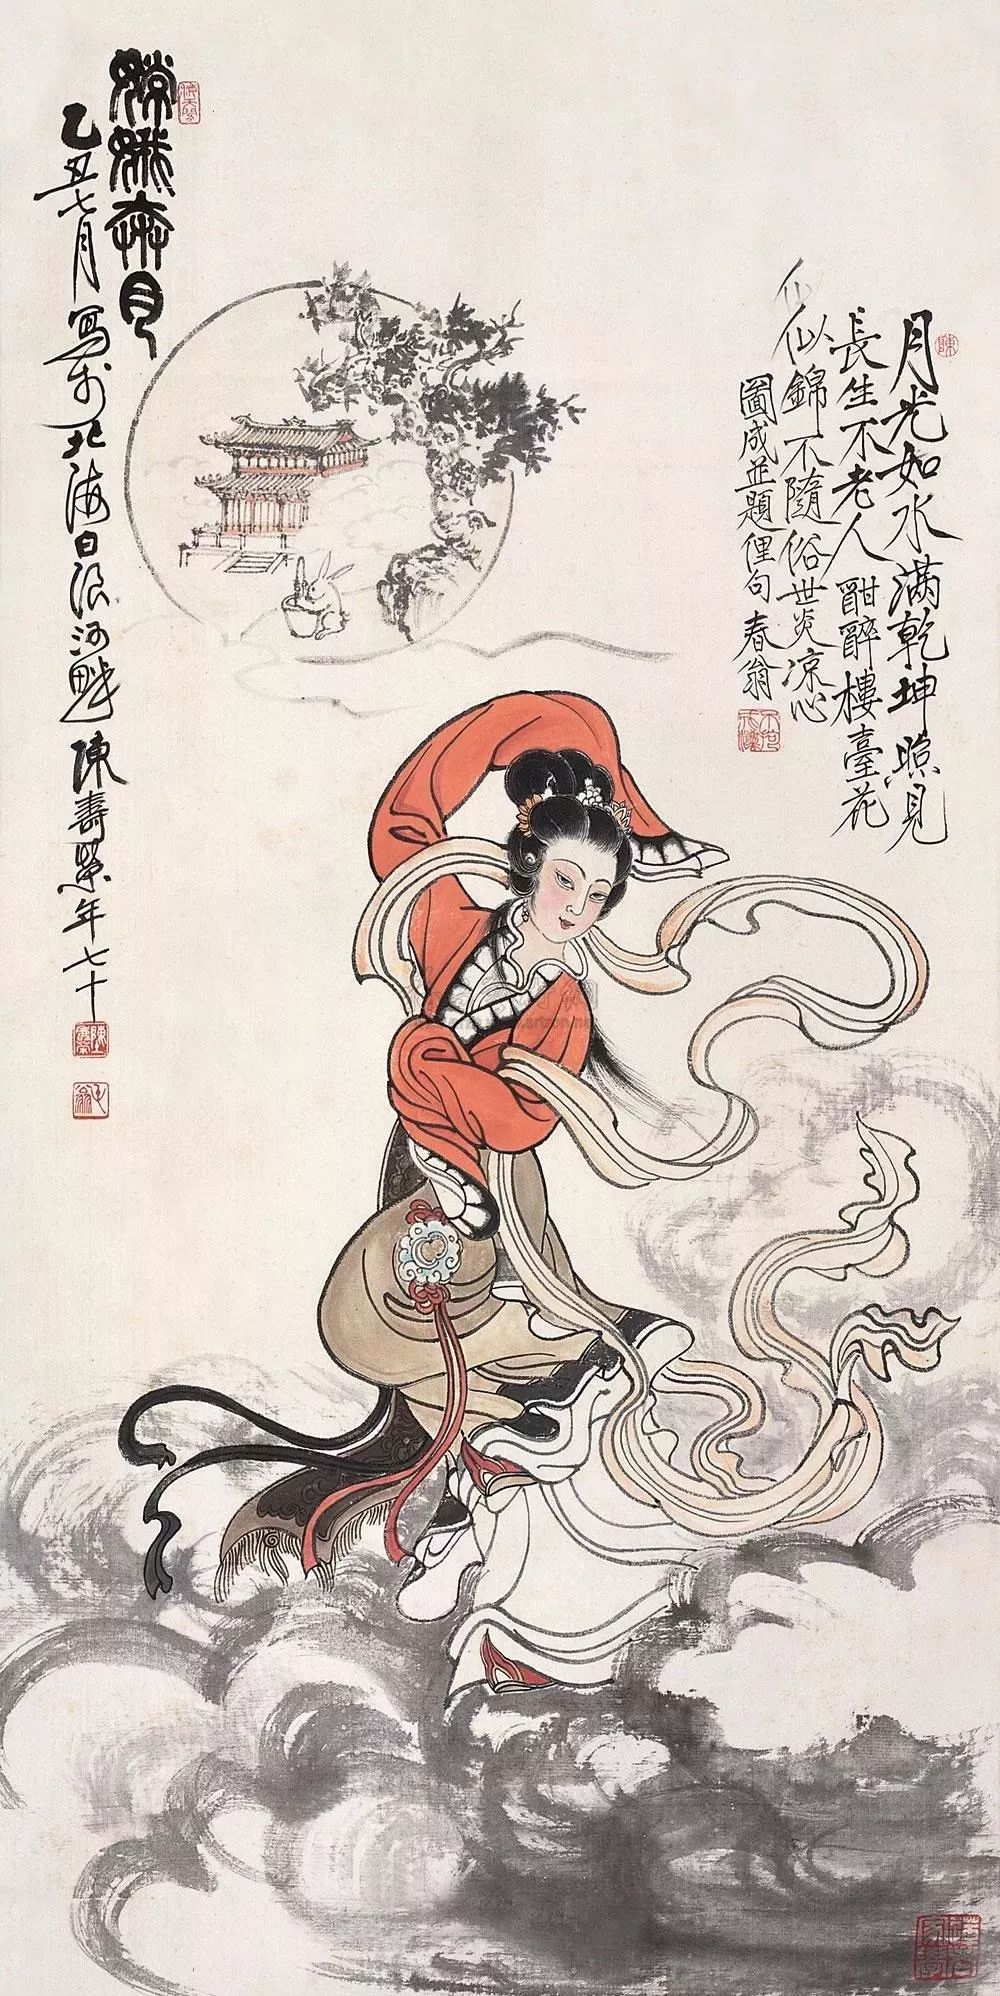 月光如水满乾坤照見
長生不老人酣醉樓臺花
似錦不隨俗世炎凉心
圖成並題俚句春翁
嫦娥奔月
乙丑七月寫於北海白浪河畔陳壽榮年七十